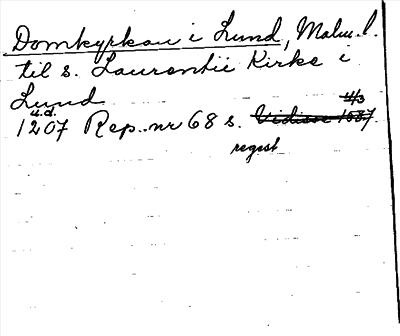 Domkyrkan i Lund, Malm. l.
til s. Laurentii Kirke i
Lund
u.d. 4/3
1207 Rep. nr 68 s. Vidisse 1587.
regest